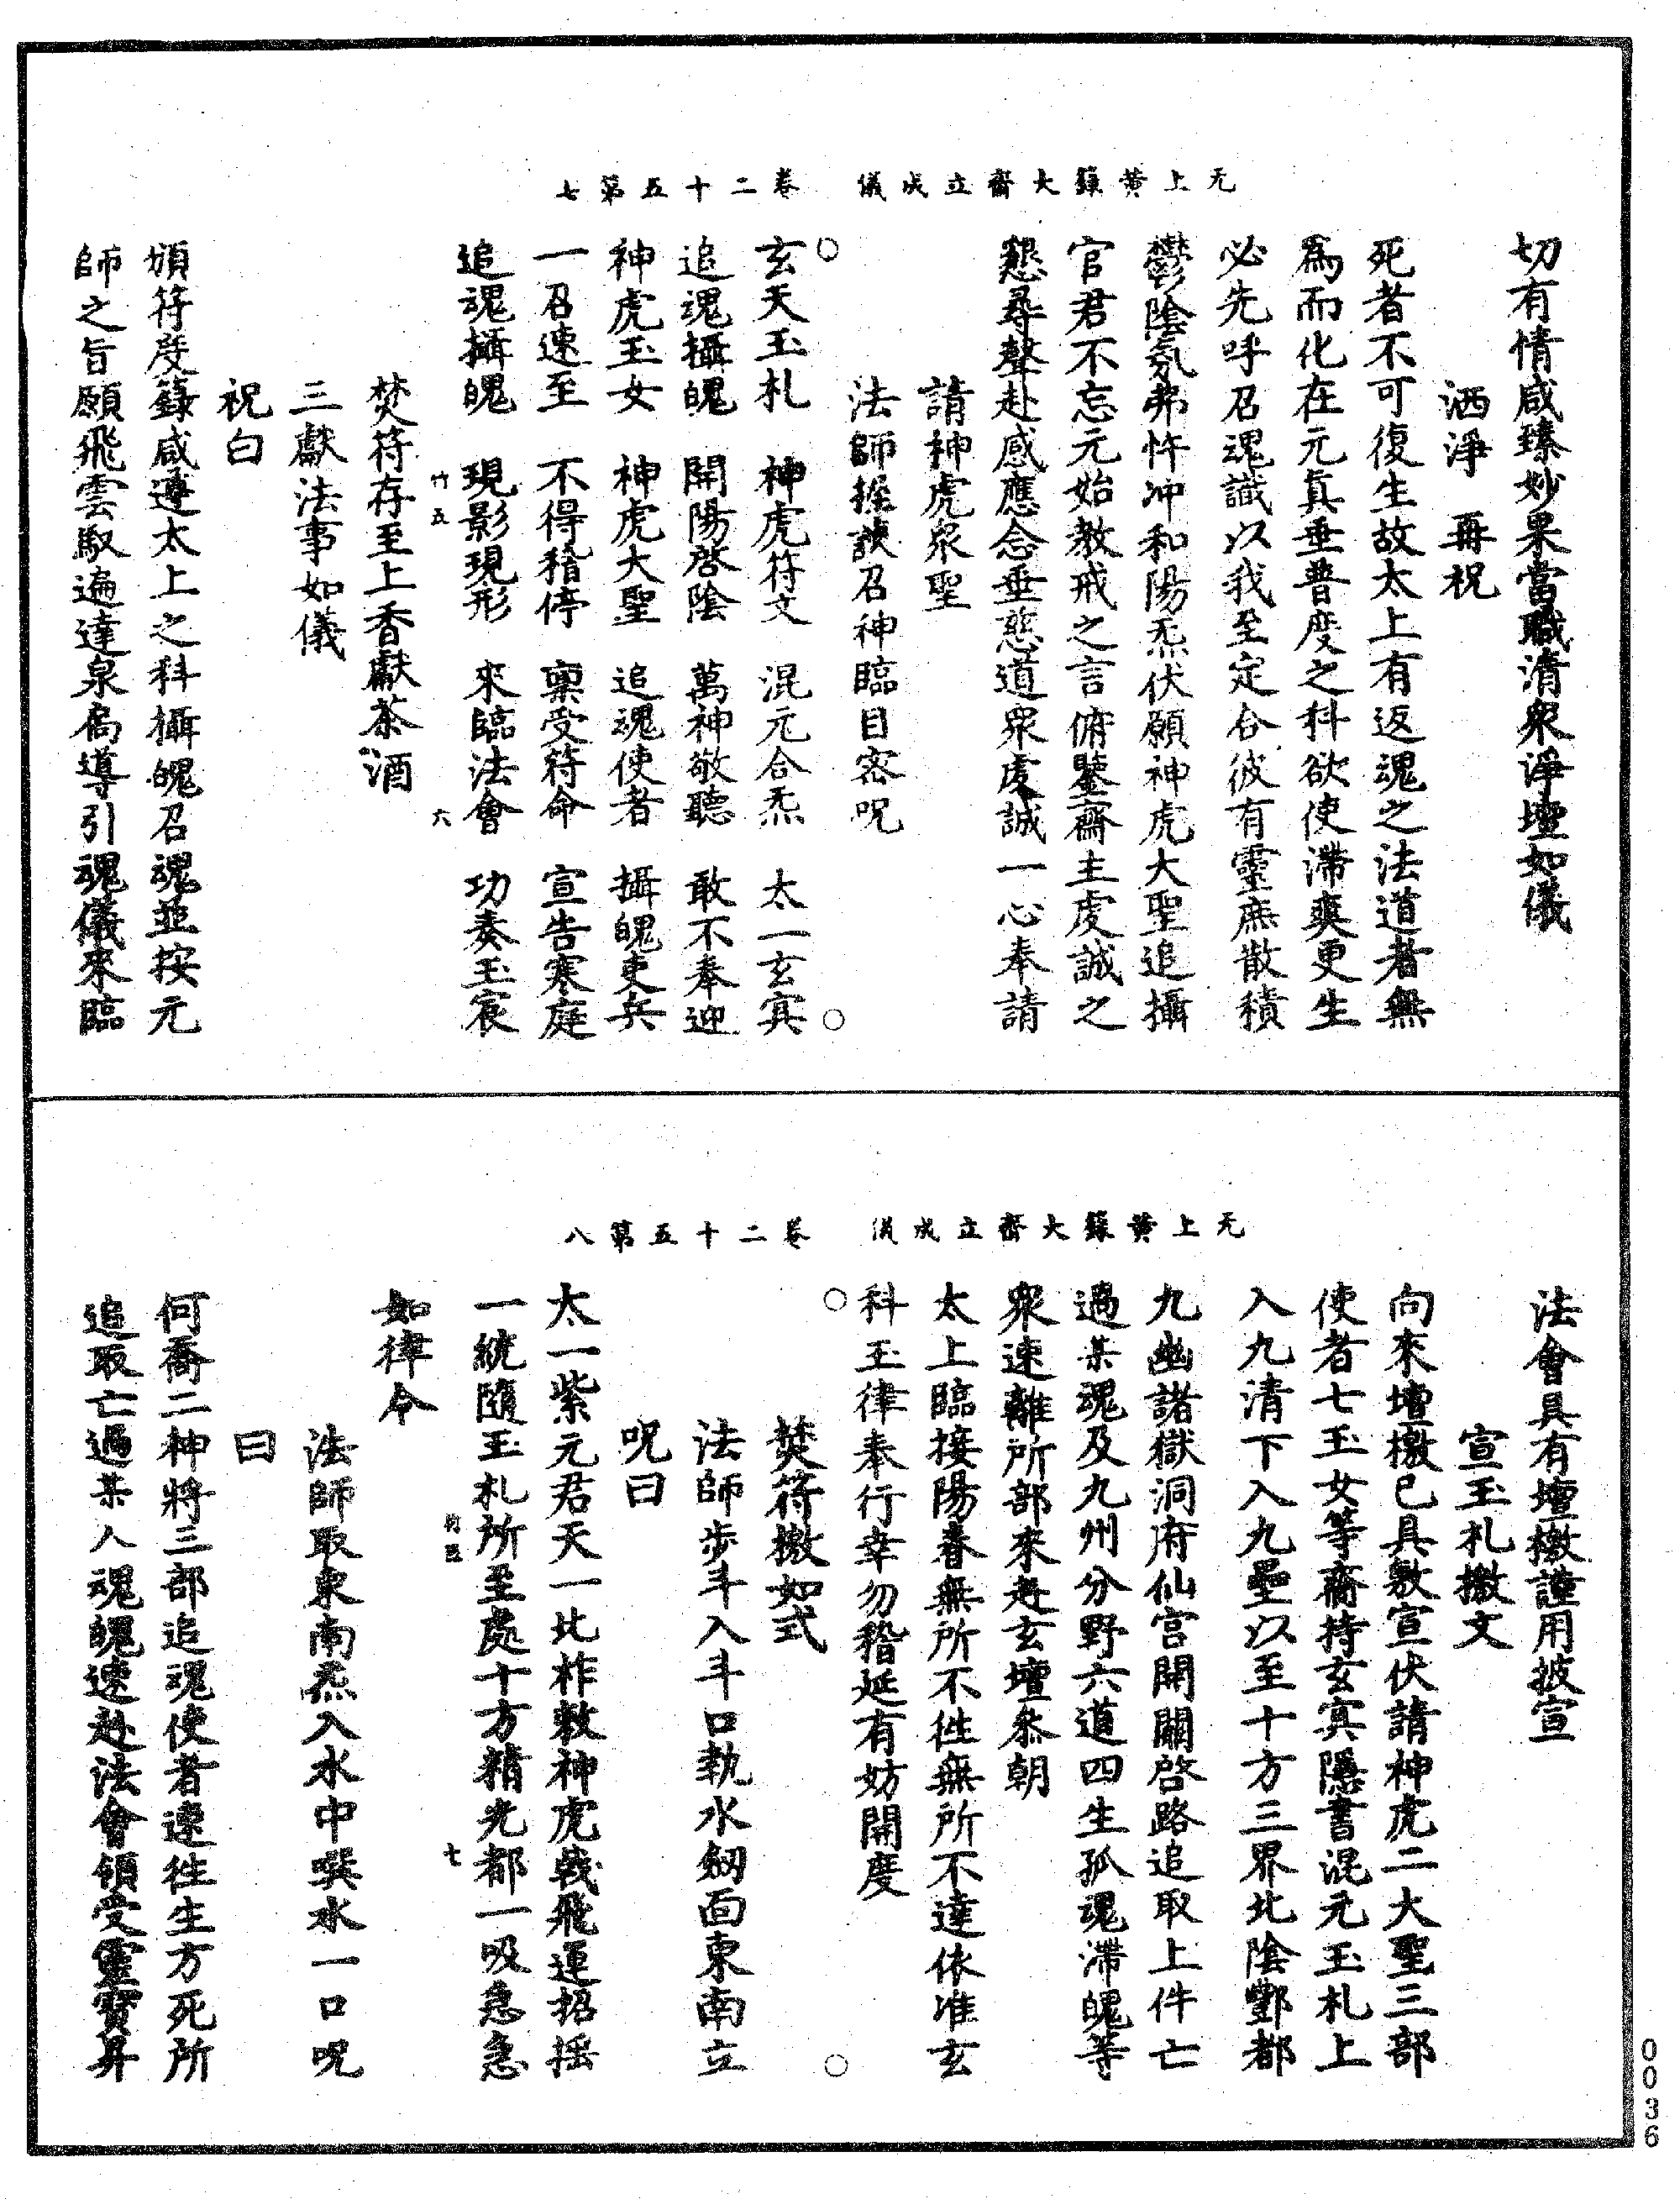 无上黃籙大齋立成儀 卷二十五第七
切有情咸臻妙果當職清眾淨壇如儀
洒淨 再祝
死者不可復生故太上有返魂之法道者無
為而化在元真垂普度之科欲使滯爽更生
必先呼召魂識以我至定合彼有靈庶散積
鬱陰氛弗忤沖和陽炁伏願神虎大聖追攝
官君不忘元始教戒之言俯鑒齋主虔誠之
懇尋聲赴感應念垂慈道眾虔誠一心奉請
請神虎眾聖
法師握訣召神臨目密呪
玄天玉札 神虎符文 混元合炁 太一玄冥
追魂攝魄 開陽啓陰 萬神敬聽 敢不奉迎
神虎玉女 神虎大聖 追魂使者 攝魄吏兵
一召速至 不得稽停 稟受符命 宣告寒庭
追魂攝魄 現影現形 來臨法會 功奏玉宸
竹五 六
焚符存至上香獻茶酒
三獻法事如儀
祝白
頒符度籙咸遵太上之科攝魄召魂並按元
師之旨願飛雲馭遍達泉扃導引魂儀來臨
无上黃籙大齋立成儀 卷二十五第八
法會具有壇檄謹用披宣
宣玉札檄文
向來壇檄已具敷宣伏請神虎二大聖三部
使者七玉女等齎持玄冥隱書混元玉札上
入九清下入九壘以至十方三界北陰酆都
九幽諸獄洞府仙宮開關啓路追取上件亡
過某魂及九州分野六道四生孤魂滯魄等
眾速離所部來赴玄壇叅朝
太上臨接陽春無所不徃無所不達依准玄
科玉律奉行幸勿稽延有妨開度
焚符檄如式
法師步斗入斗口執水劒面東南立
呪曰
太一紫元君天一比柞敕神虎戟飛運招搖
一統隨玉札所至處十方精光都一吸急急
七
如律令
法師取東南炁入水中噀水一口呪
曰
何喬二神將三部追魂使者速徃生方死所
追取亡過某人魂魄速赴法會領受靈寶昇
0036